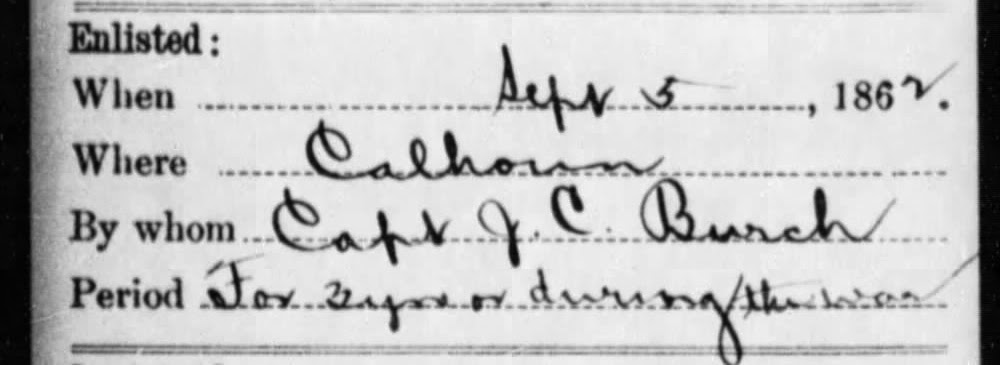 Enlisted:
When Sept 5, 1862.
Where Calhoun
By whom Capt J. C. Burch
Period For 3 yrs or during the war